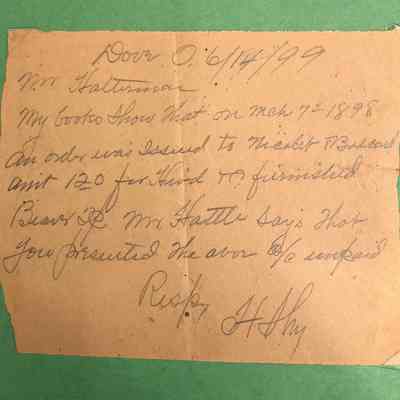 Dove O. 6/14/99
Mr Halterman
My books show that on Mch 7- 1898
An order was issued to Nicolet &
amt 120 for furnished
Beaver Mr Hattle says that
you presented the abov % unpaid
Resp,